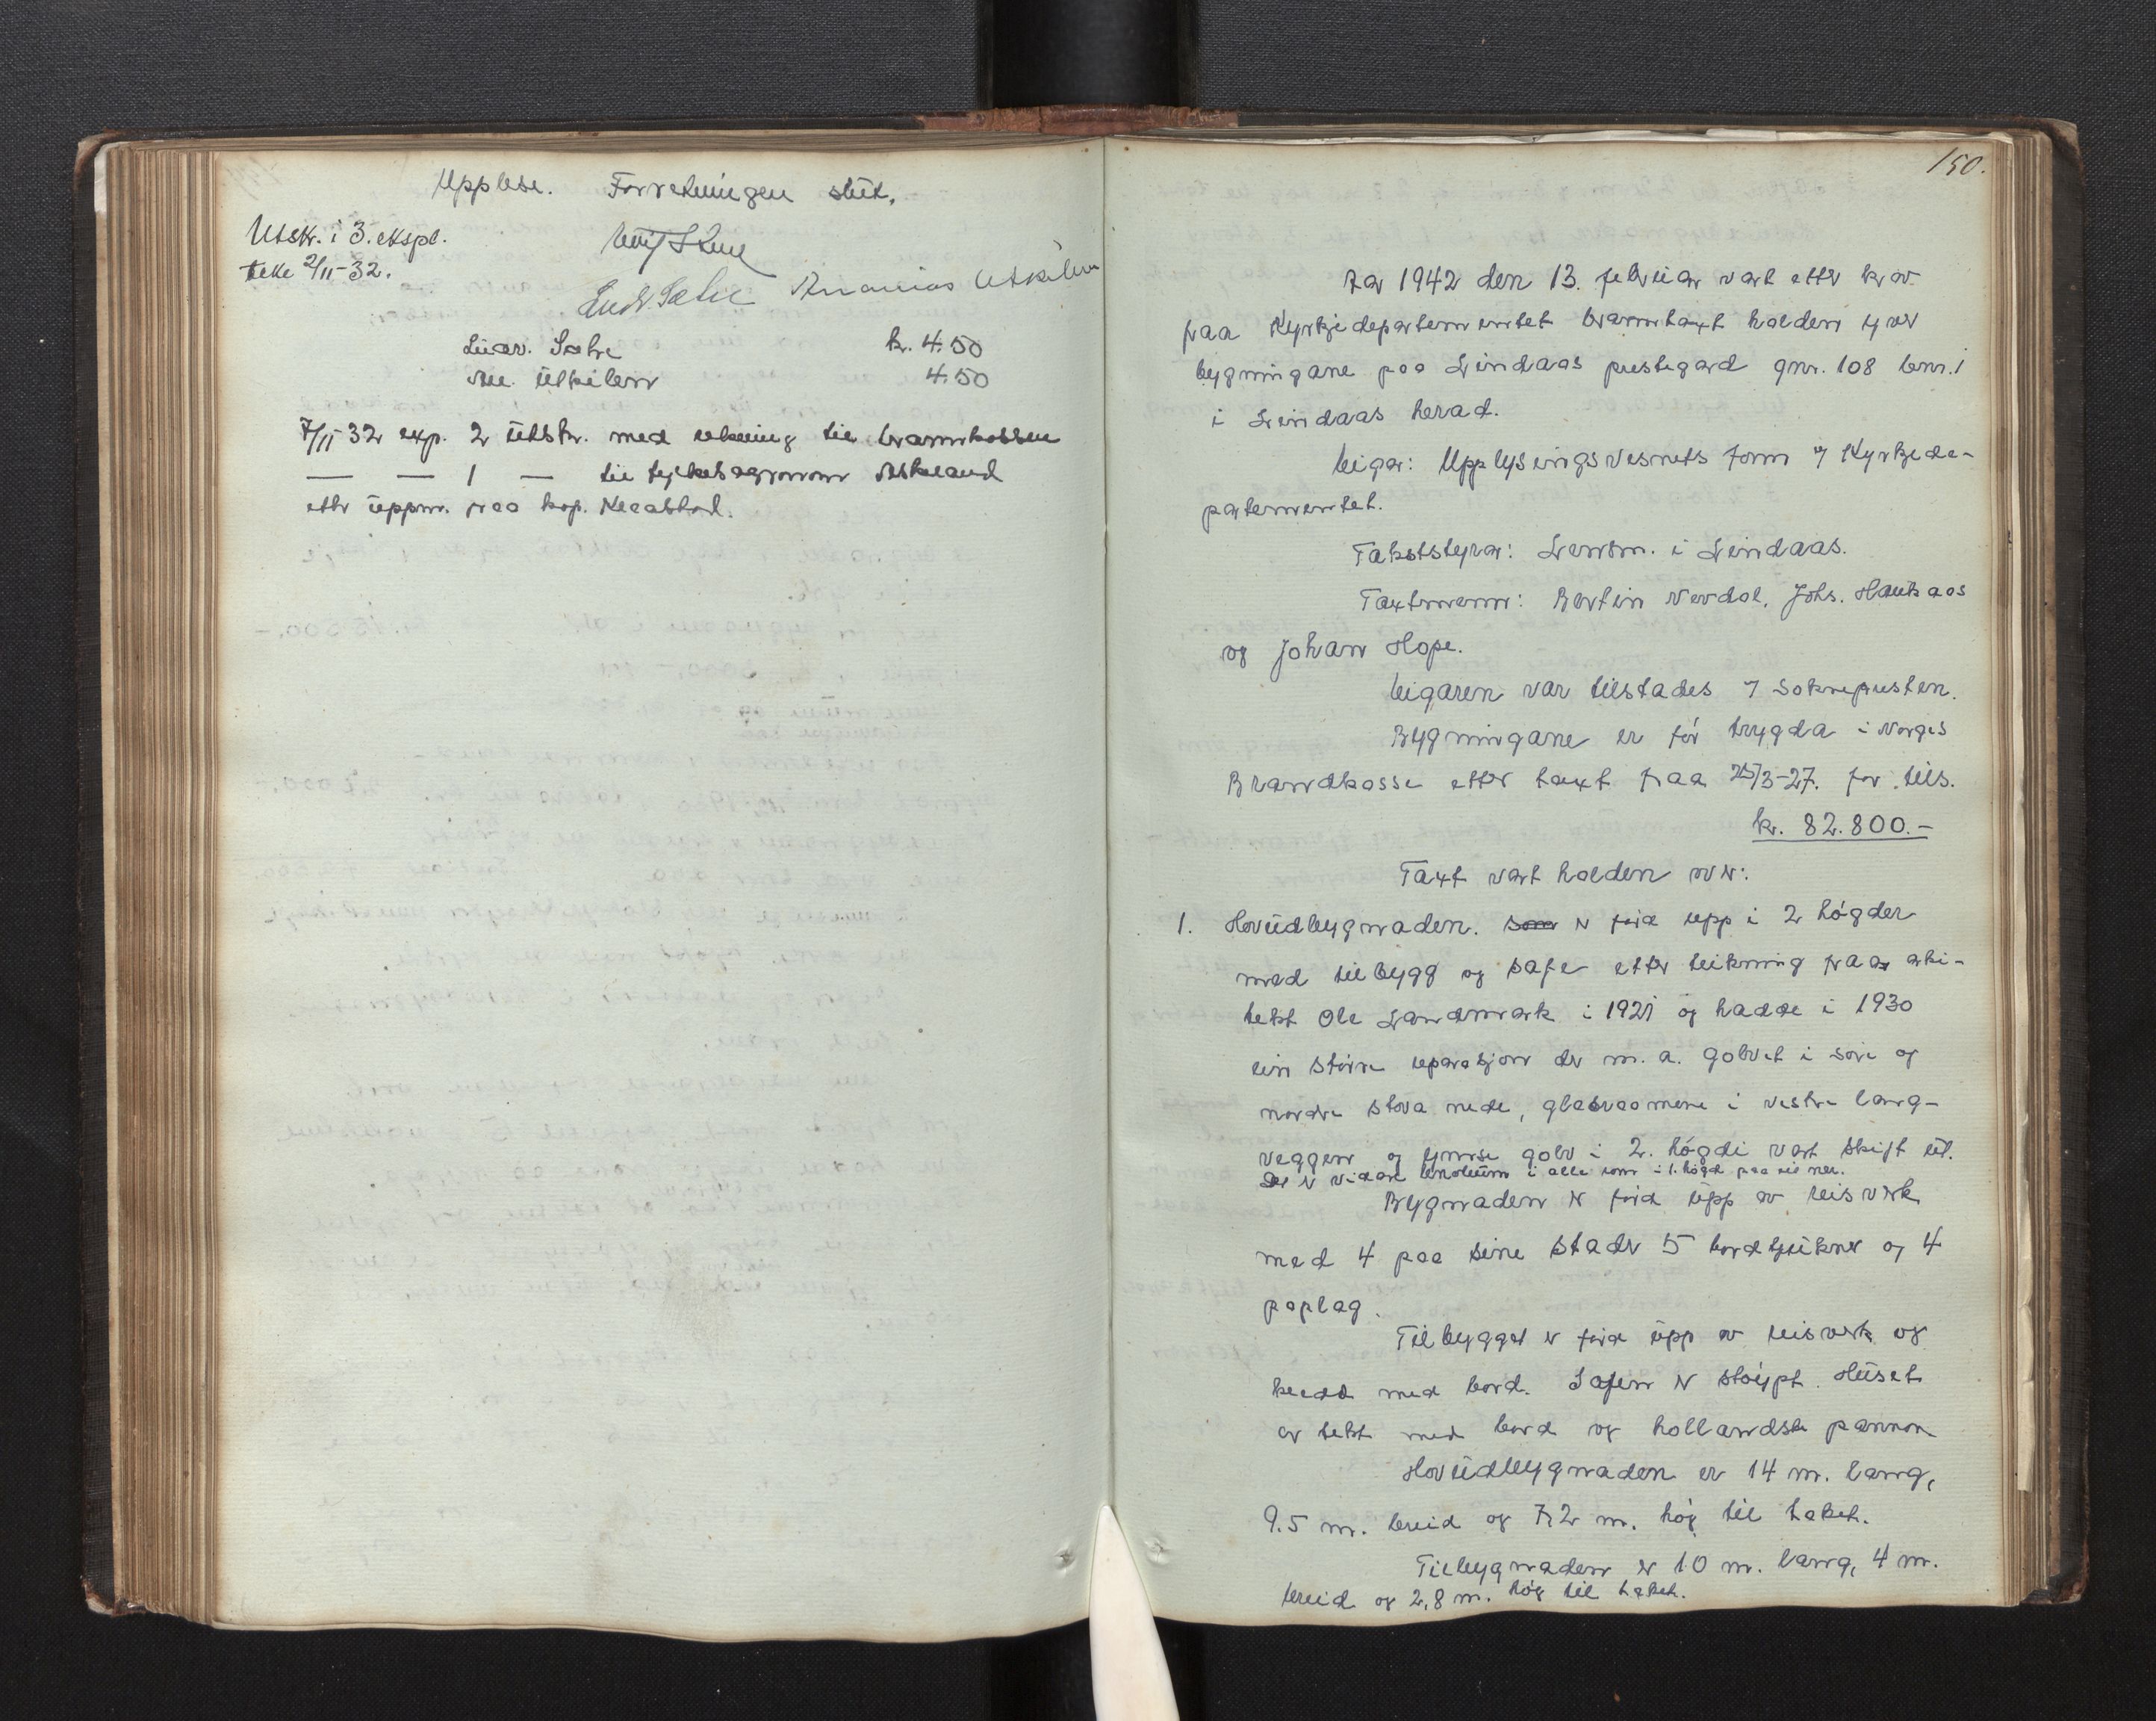 Upplese. Forretningen slut.
Utskr. i 3. ekspl.
teke 2/11-32.
Ananias Utkilen
Ludv. Sætre kr. 4.50
An. Utkilen 4.50
7/11 32 exp. 2 utskr. med rekning til brannkassen
— — 1 — til fylkesagronom Askeland
etter uppm. fraa kap.
150.
Aar 1942 den 13. februar vart etter krav
fraa Kyrkjedepartementet branntaxt halden yver
bygningane paa Lindaas prestegard gnr. 108 bnr. 1
i Lindaas herad.
Eigar: Upplysingsvesenets fonn v/ Kyrkjede-
partementet.
Takststyrar: Lensm. i Lindaas.
Taxtmenn: Bertin Nevdal, Johs. Haukaas
og Johan Hope.
Eigaren var tilstades v/ Soknepresten.
Bygningane er før trygda i Norges
Brandkasse etter taxt fraa 25/3-27. for tils.
kr. 82.800.-
Taxt vart halden over:
1. Hovudbygnaden. som er förd upp i 2 högder
med tilbygg og safe etter teikning fraa arki-
tekt Ole Landmark i 1921 og hadde i 1930
ein større reparasjon der m. a. golvet i söre og
nordre stova nede, glasraamene i vestre lang-
veggen og ymse golv i 2. högdi vart skift ut.
Det er vidare linoleum i alle rom i 1. högd paa eit nær.
Bygnaden er förd upp av reisverk
med 4 paa sine stader 5 bordtjukner og 4
paplag.
Tilbygget er förd upp av reisverk og
kledd med bord. Safen er stöypt. Huset
er tekt med bord og hollandske pannor
Hovudbygnaden er 14 m. lang,
9.5 m. breid og 7,2 m. høg til taket.
Tilbygnaden er 10 m. lang, 4 m.
breid og 2,8 m. høg til taket.